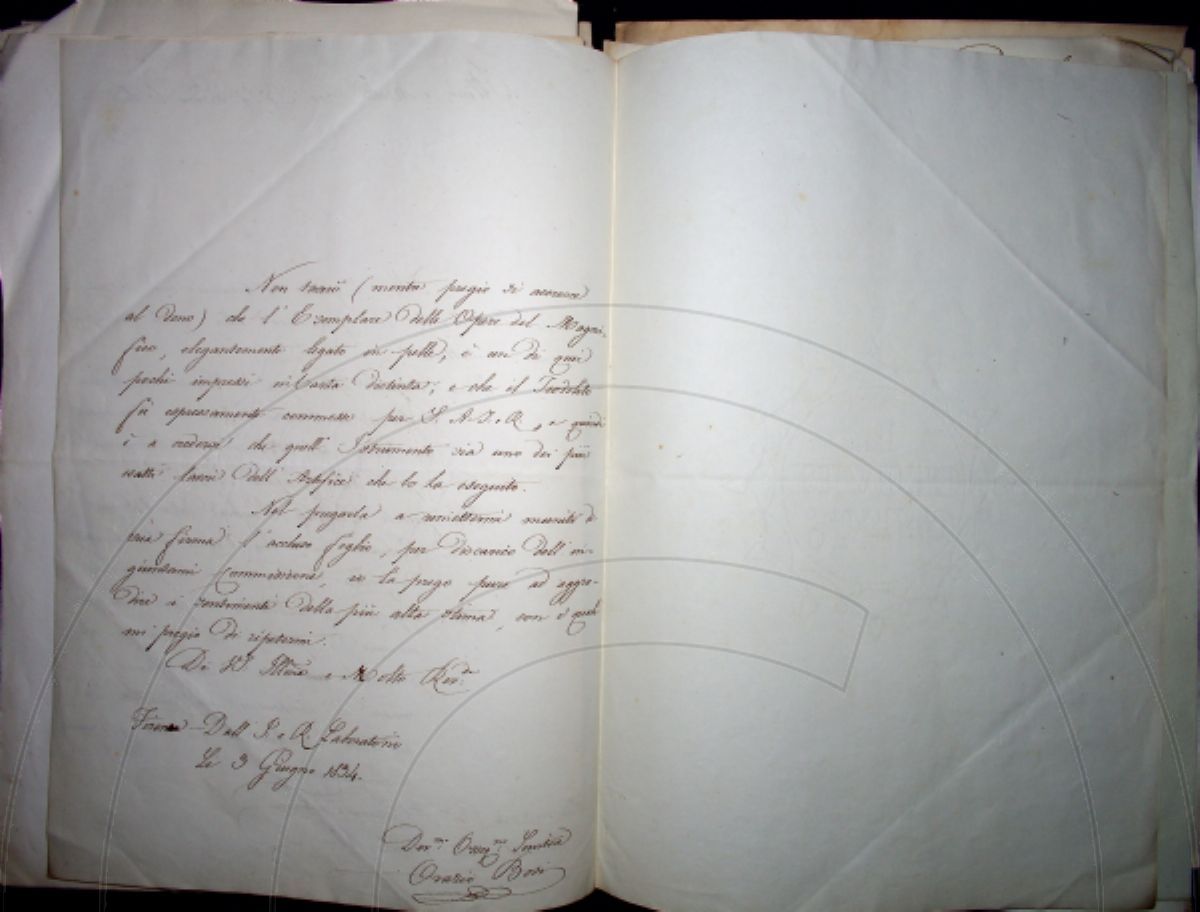 Non tacerò (mentre pregio si accresce
al dono) che l'Esemplare delle Opere del Magni-
fico, elegantemente legato in pelle, è un di quei
pochi impressi in Carta distinta; e che il Teodolite
fu espressamente commesso per S. A. I. e R., e quindi
è a credersi che quell'Istrumento sia uno dei più
esatti lavori dell'Artefice che lo ha eseguito.
Nel pregarla a rimettermi munito di
sua firma l'accluso foglio, per discarico dell'in-
giuntami Commissione, io la prego pure ad aggra-
dire i sentimenti della più alta stima, con i quali
mi pregio di ripetermi.
Di V. S. Illma e Molto Revda
Firenze Dall'I. e R. Laboratorio
Le 3 Giugno 1834.
Devmo Obbmo Servitore
Orazio